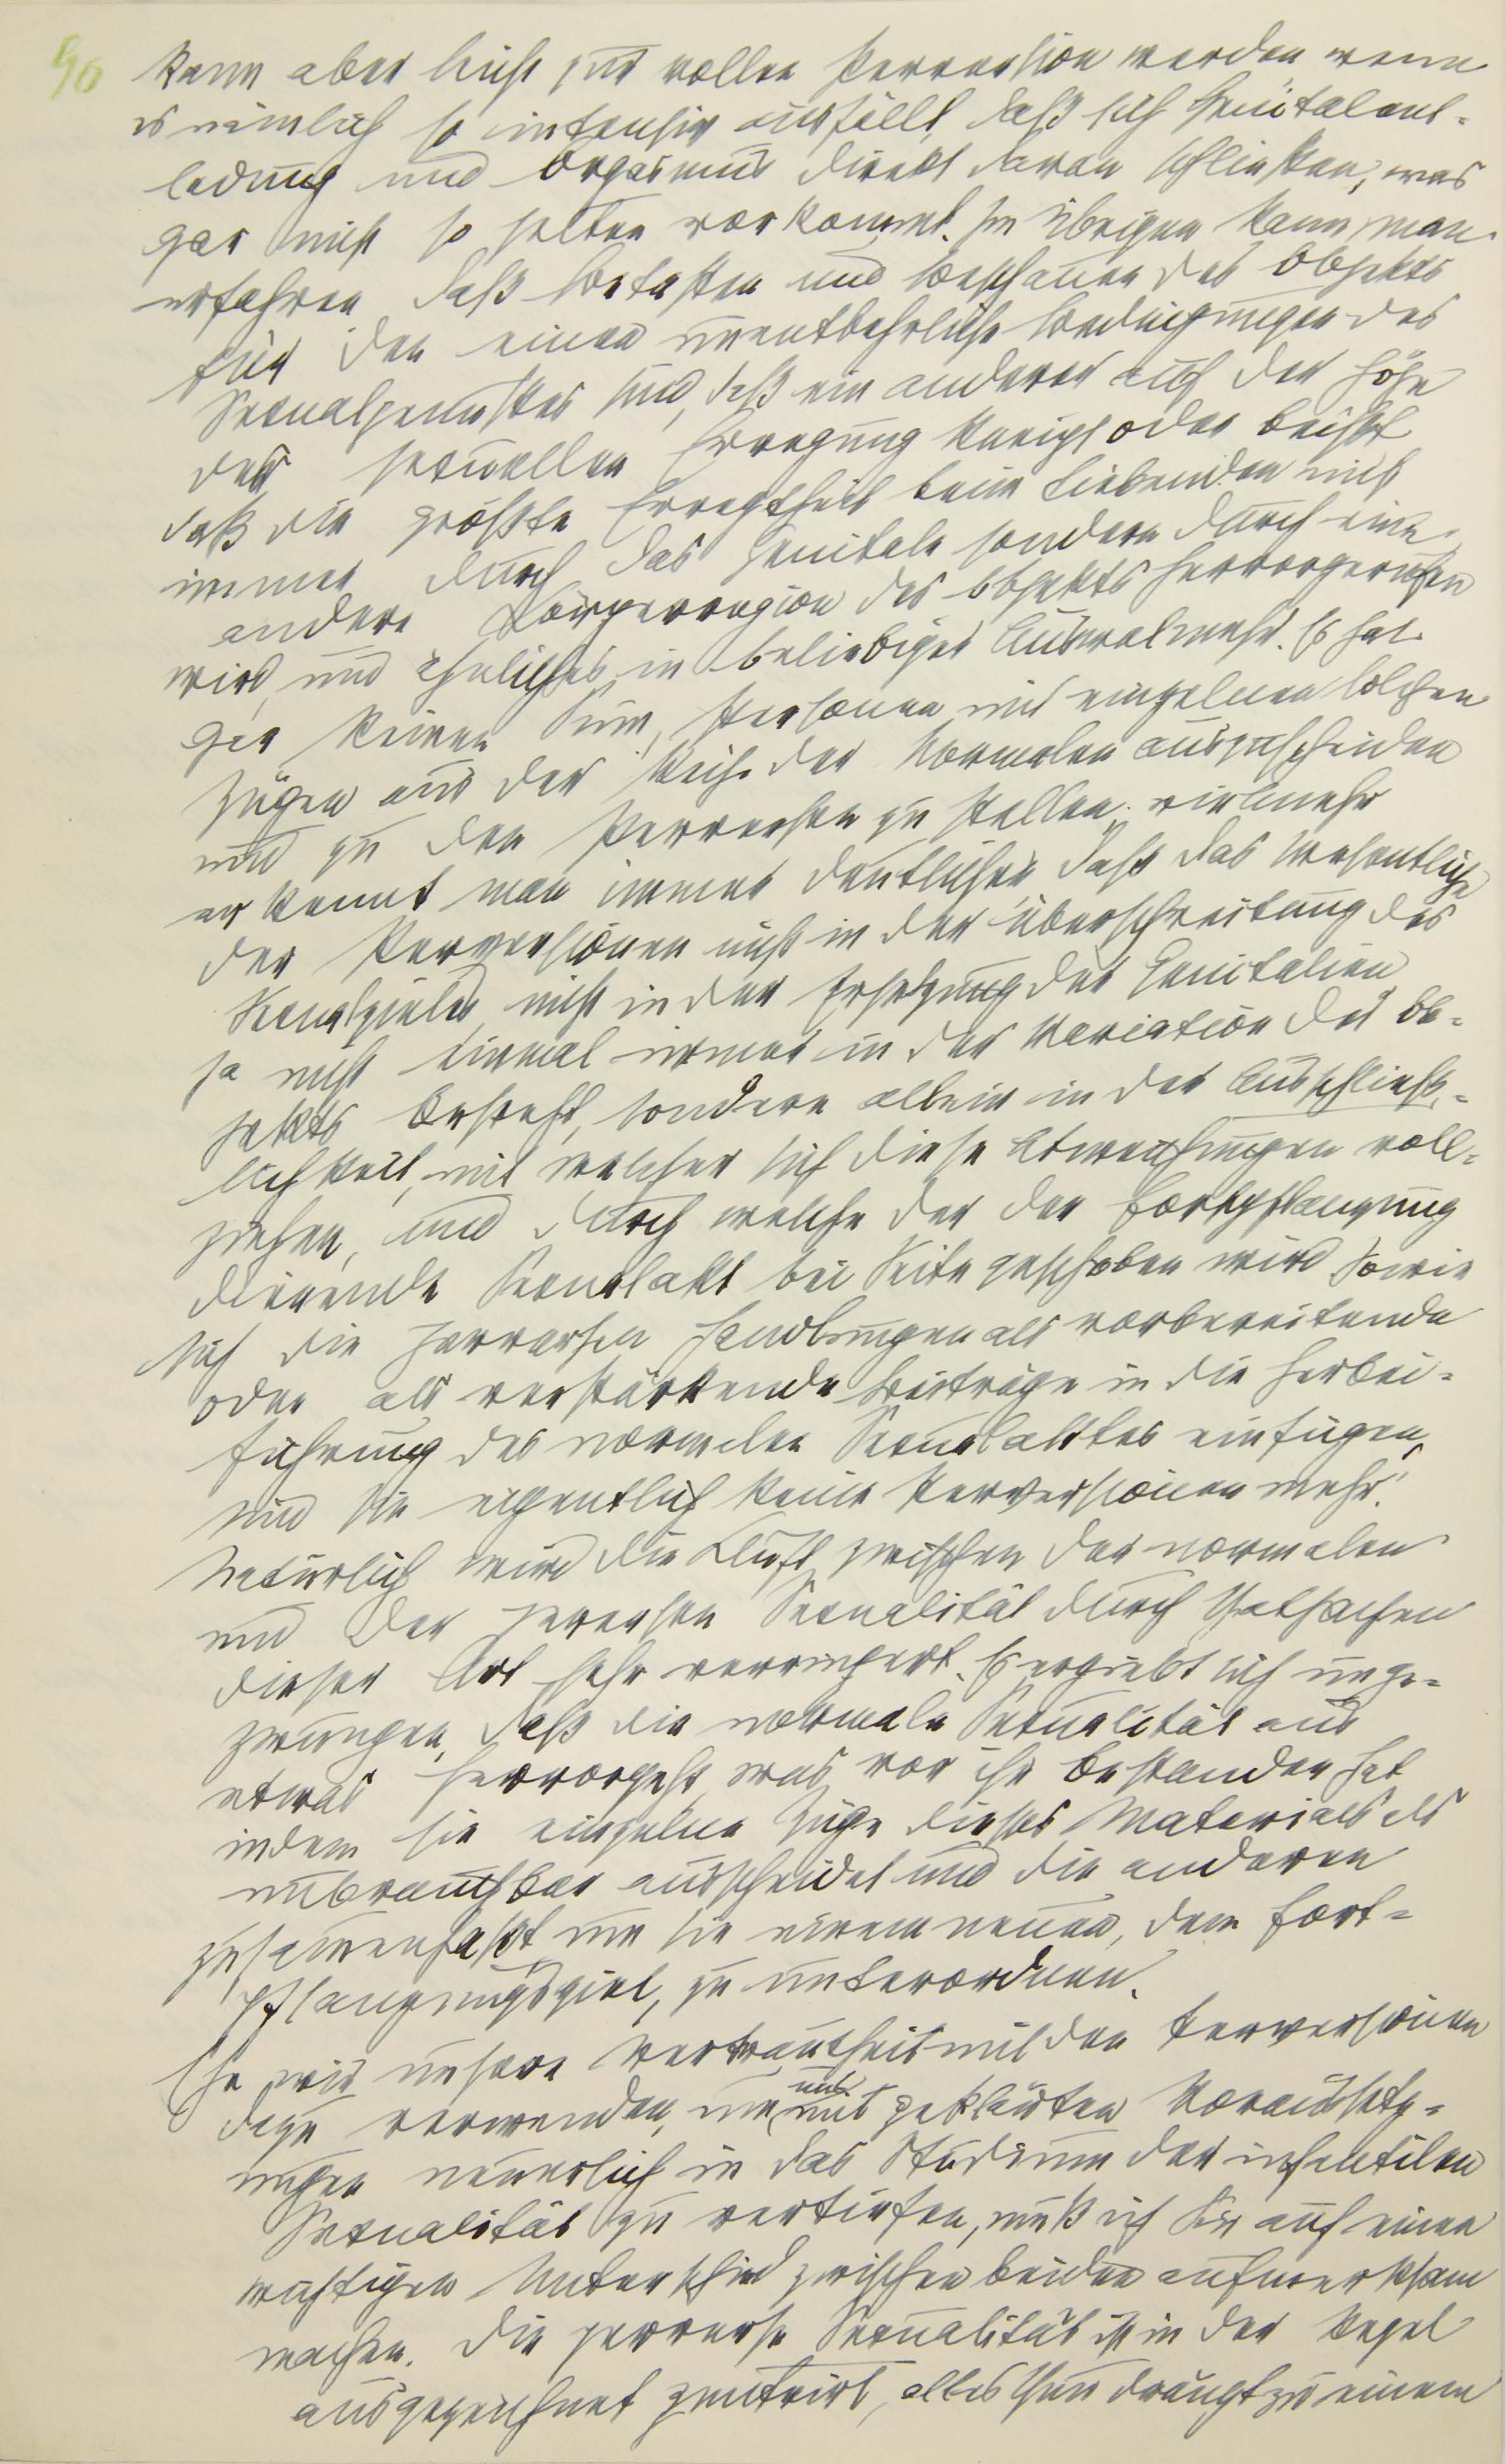 90
kann aber leicht zur vollen Perversion werden wenn
es nämlich so intensiv ausfällt, daß sich Genitalent-
ladung und Orgasmus direkt daran schließen, was
gar nicht so selten vorkommt. Im Übrigen kann man
erfahren daß Betasten und Beschauen des Objekts
für den einen unentbehrliche Bedingungen des
Sexualgenußes sind, daß ein anderer auf der Höhe
der sexuellen Erregung kneipt oder beißt
daß die größte Erregtheit beim Liebenden nicht
immer durch das Genitale sondern durch eine
andere Körperregion des Objekts hervorgerufen
wird, und ähnliches in beliebiger Auswal mehr. Es hat
gar keinen Sinn, Personen mit einzelnen solchen
Zügen aus der Reihe der Normalen auszuscheiden
und zu den Perversen zu stellen, vielmehr
erkennt man immer deutlicher daß das Wesentliche
der Perversionen nicht in der Überschreitung des
Sexualzieles, nicht in der Ersetzung der Genitalien
ja nicht einmal immer in der Variation des Ob-
jekts besteht, sondern allein in der Ausschließ-
lichkeit, mit welcher sich diese Abweichungen voll-
ziehen, und durch welche der der Fortpflanzung
dienende Sexualakt bei Seite geschoben wird. Sowie
sich die perversen Handlungen als vorbereitende
oder als verstärkende Beiträge in die Herbei-
führung des normalen Sexualaktes einfügen,
sind sie eigentlich keine Perversionen mehr.
Natürlich wird die Kluft zwischen der normalen
und der perversen Sexualität durch Thatsachen
dieser Art sehr verringert. Es ergiebt sich unge-
zwungen, daß die normale Sexualität aus
etwas hervorgeht, was vor ihr bestanden hat
indem sie einzelne Züge dieses Materials als
unbrauchbar ausscheidet und die anderen
zusammenfaßt um sie einem neuen, dem Fort-
pflanzungsziel, zu unterordnen.
Ehe wir unsere Vertrautheit mit den Perversionen
dazu verwenden, um uns mit geklärten Voraussetz-
ungen neuerlich in das Studium der infantilen
Sexualität zu vertiefen, muß ich Sie auf einen
wichtigen Unterschied zwischen beiden aufmerksam
machen. Die perverse Sexualität ist in der Regel
ausgezeichnet zentrirt, alles Thun drängt zu einem